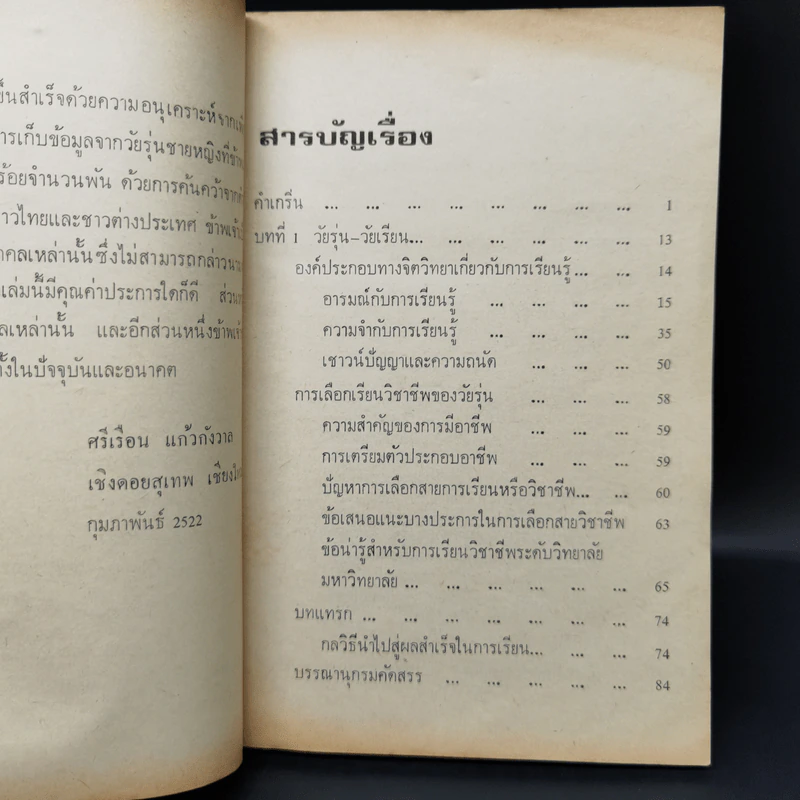 ขึ้นสำเร็จด้วยความอนุเคราะห์จาก
การเก็บข้อมูลจากวัยรุ่นชายหญิงที่
ร้อยจำนวนพัน ด้วยการค้นคว้าจาก
ชาวไทยและชาวต่างประเทศ ข้าพเจ้า
บุคคลเหล่านั้นซึ่งไม่สามารถกล่าว
เล่มนี้มีคุณค่าประการใดก็ดี
เหล่านั้น และอีกส่วนหนึ่งข้าพเจ้า
ทั้งในปัจจุบันและอนาคต
ศรีเรือน แก้วกังวาล
เชิงดอยสุเทพ
กุมภาพันธ์ 2522
สารบัญเรื่อง
คำเกริ่น ... ... ... ... ... ... ... ... 1
บทที่ 1 วัยรุ่น–วัยเรียน... ... ... ... ... ... 13
องค์ประกอบทางจิตวิทยาเกี่ยวกับการเรียนรู้ ... ... 14
อารมณ์กับการเรียนรู้ ... ... ... ... 15
ความจำกับการเรียนรู้ ... ... ... ... 35
เชาวน์ปัญญาและความถนัด ... ... ... 50
การเลือกเรียนวิชาชีพของวัยรุ่น ... ... ... 58
ความสำคัญของการมีอาชีพ ... ... ... 59
การเตรียมตัวประกอบอาชีพ ... ... ... 59
ปัญหาการเลือกสายการเรียนหรือวิชาชีพ... ... 60
ข้อเสนอแนะบางประการในการเลือกสายวิชาชีพ 63
ข้อน่ารู้สำหรับการเรียนวิชาชีพระดับวิทยาลัย
มหาวิทยาลัย ... ... ... ... ... ... 65
บทแทรก ... ... ... ... ... ... ... 74
กลวิธีนำไปสู่ผลสำเร็จในการเรียน... ... ... 74
บรรณานุกรมคัดสรร ... ... ... ... ... 84